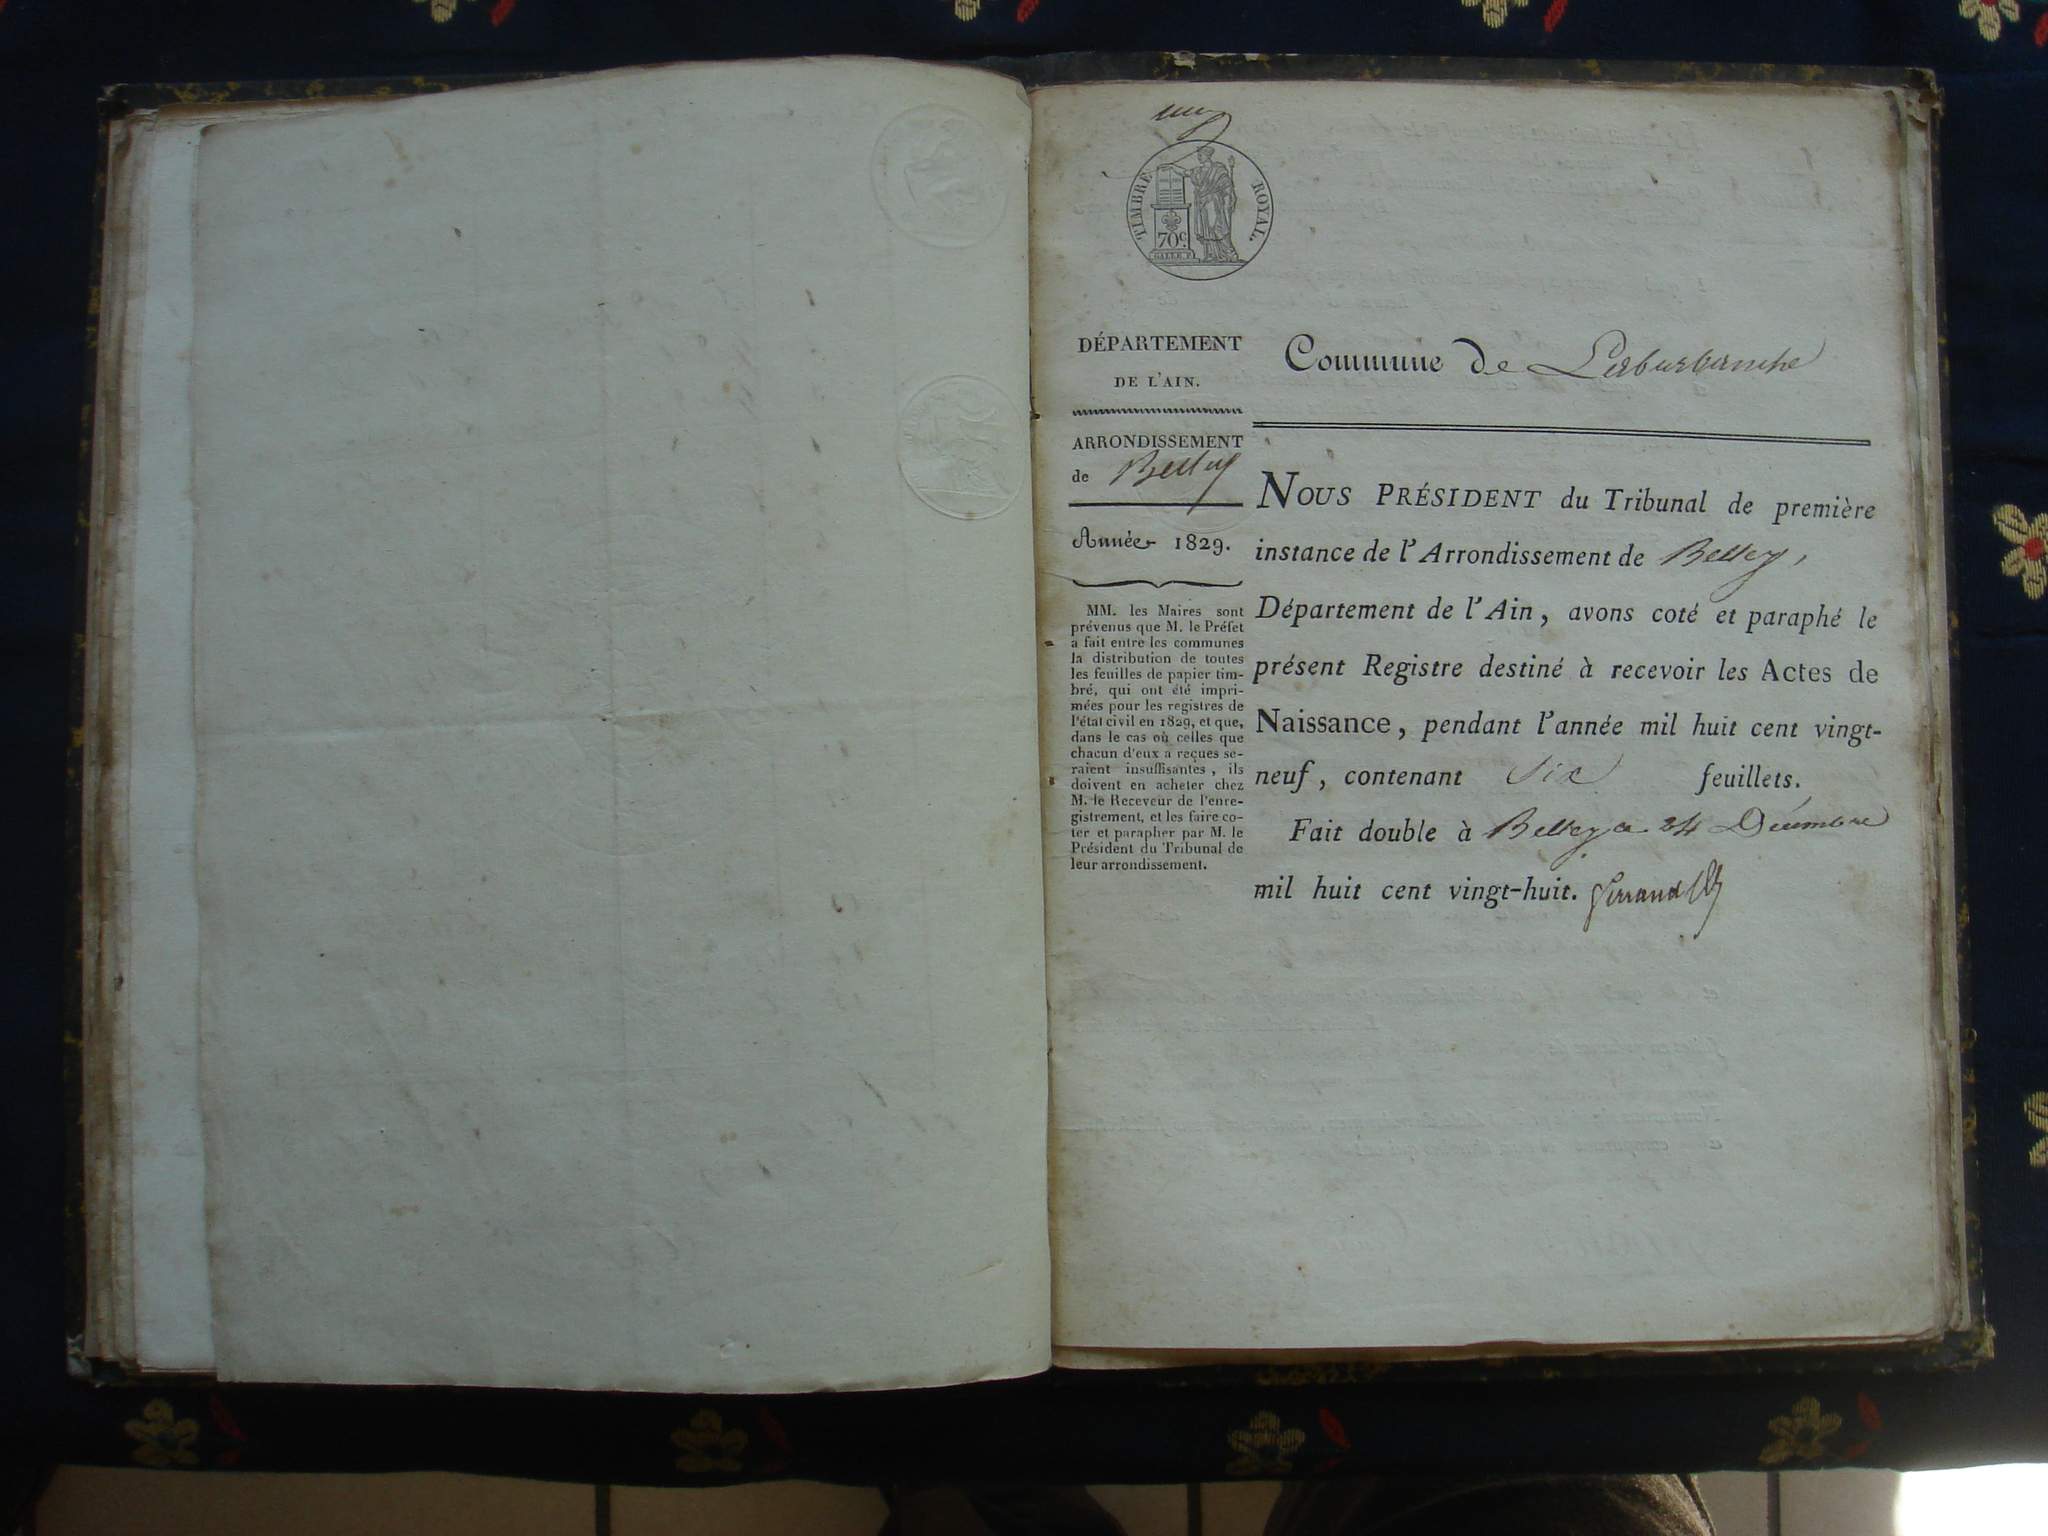 TIMBRE ROYAL.
70c.
DÉPARTEMENT
DE L'AIN.
ARRONDISSEMENT
de Belley
Année 1829.
MM. les Maires sont
prévenus que M. le Préfet
a fait entre les communes
la distribution de toutes
les feuilles de papier tim-
bré, qui ont été impri-
mées pour les registres de
l'état civil en 1829, et que,
dans le cas où celles que
chacun d'eux a reçues se-
raient insuffisantes, ils
doivent en acheter chez
M. le Receveur de l'enre-
gistrement, et les faire co-
ter et parapher par M. le
Président du Tribunal de
leur arrondissement.
Commune de Laburbanche
NOUS PRÉSIDENT du Tribunal de première
instance de l'Arrondissement de Belley,
Département de l'Ain, avons coté et paraphé le
présent Registre destiné à recevoir les Actes de
Naissance, pendant l'année mil huit cent vingt-
neuf, contenant six feuillets.
Fait double à Belley 24 Décembre
mil huit cent vingt-huit.